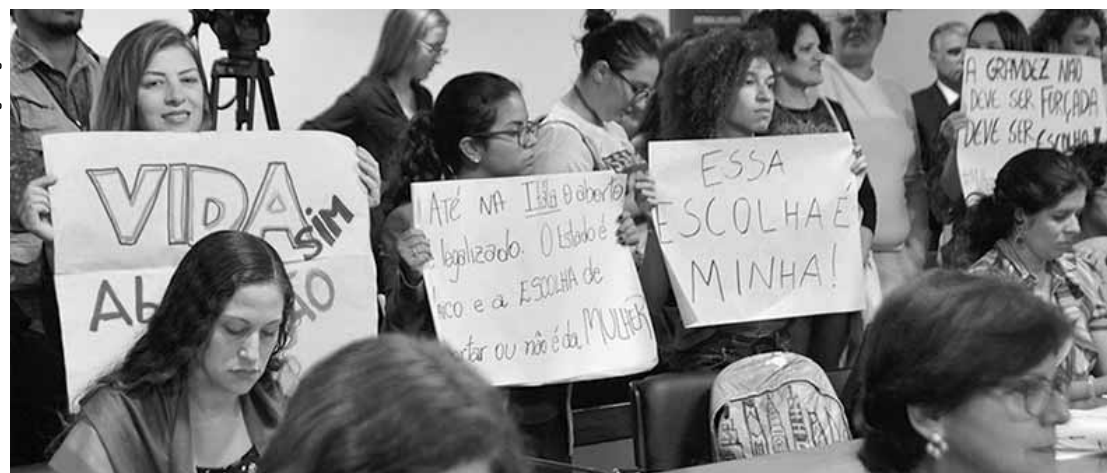 VIDA
SIM
ATÉ NA Itália o aborto
é legalizado. O Estado é
e a ESCOLHA de
ou não é da MULHER
ESSA
ESCOLHA É
MINHA!
A GRAVIDEZ NÃO
DEVE SER FORÇADA
DEVE SER